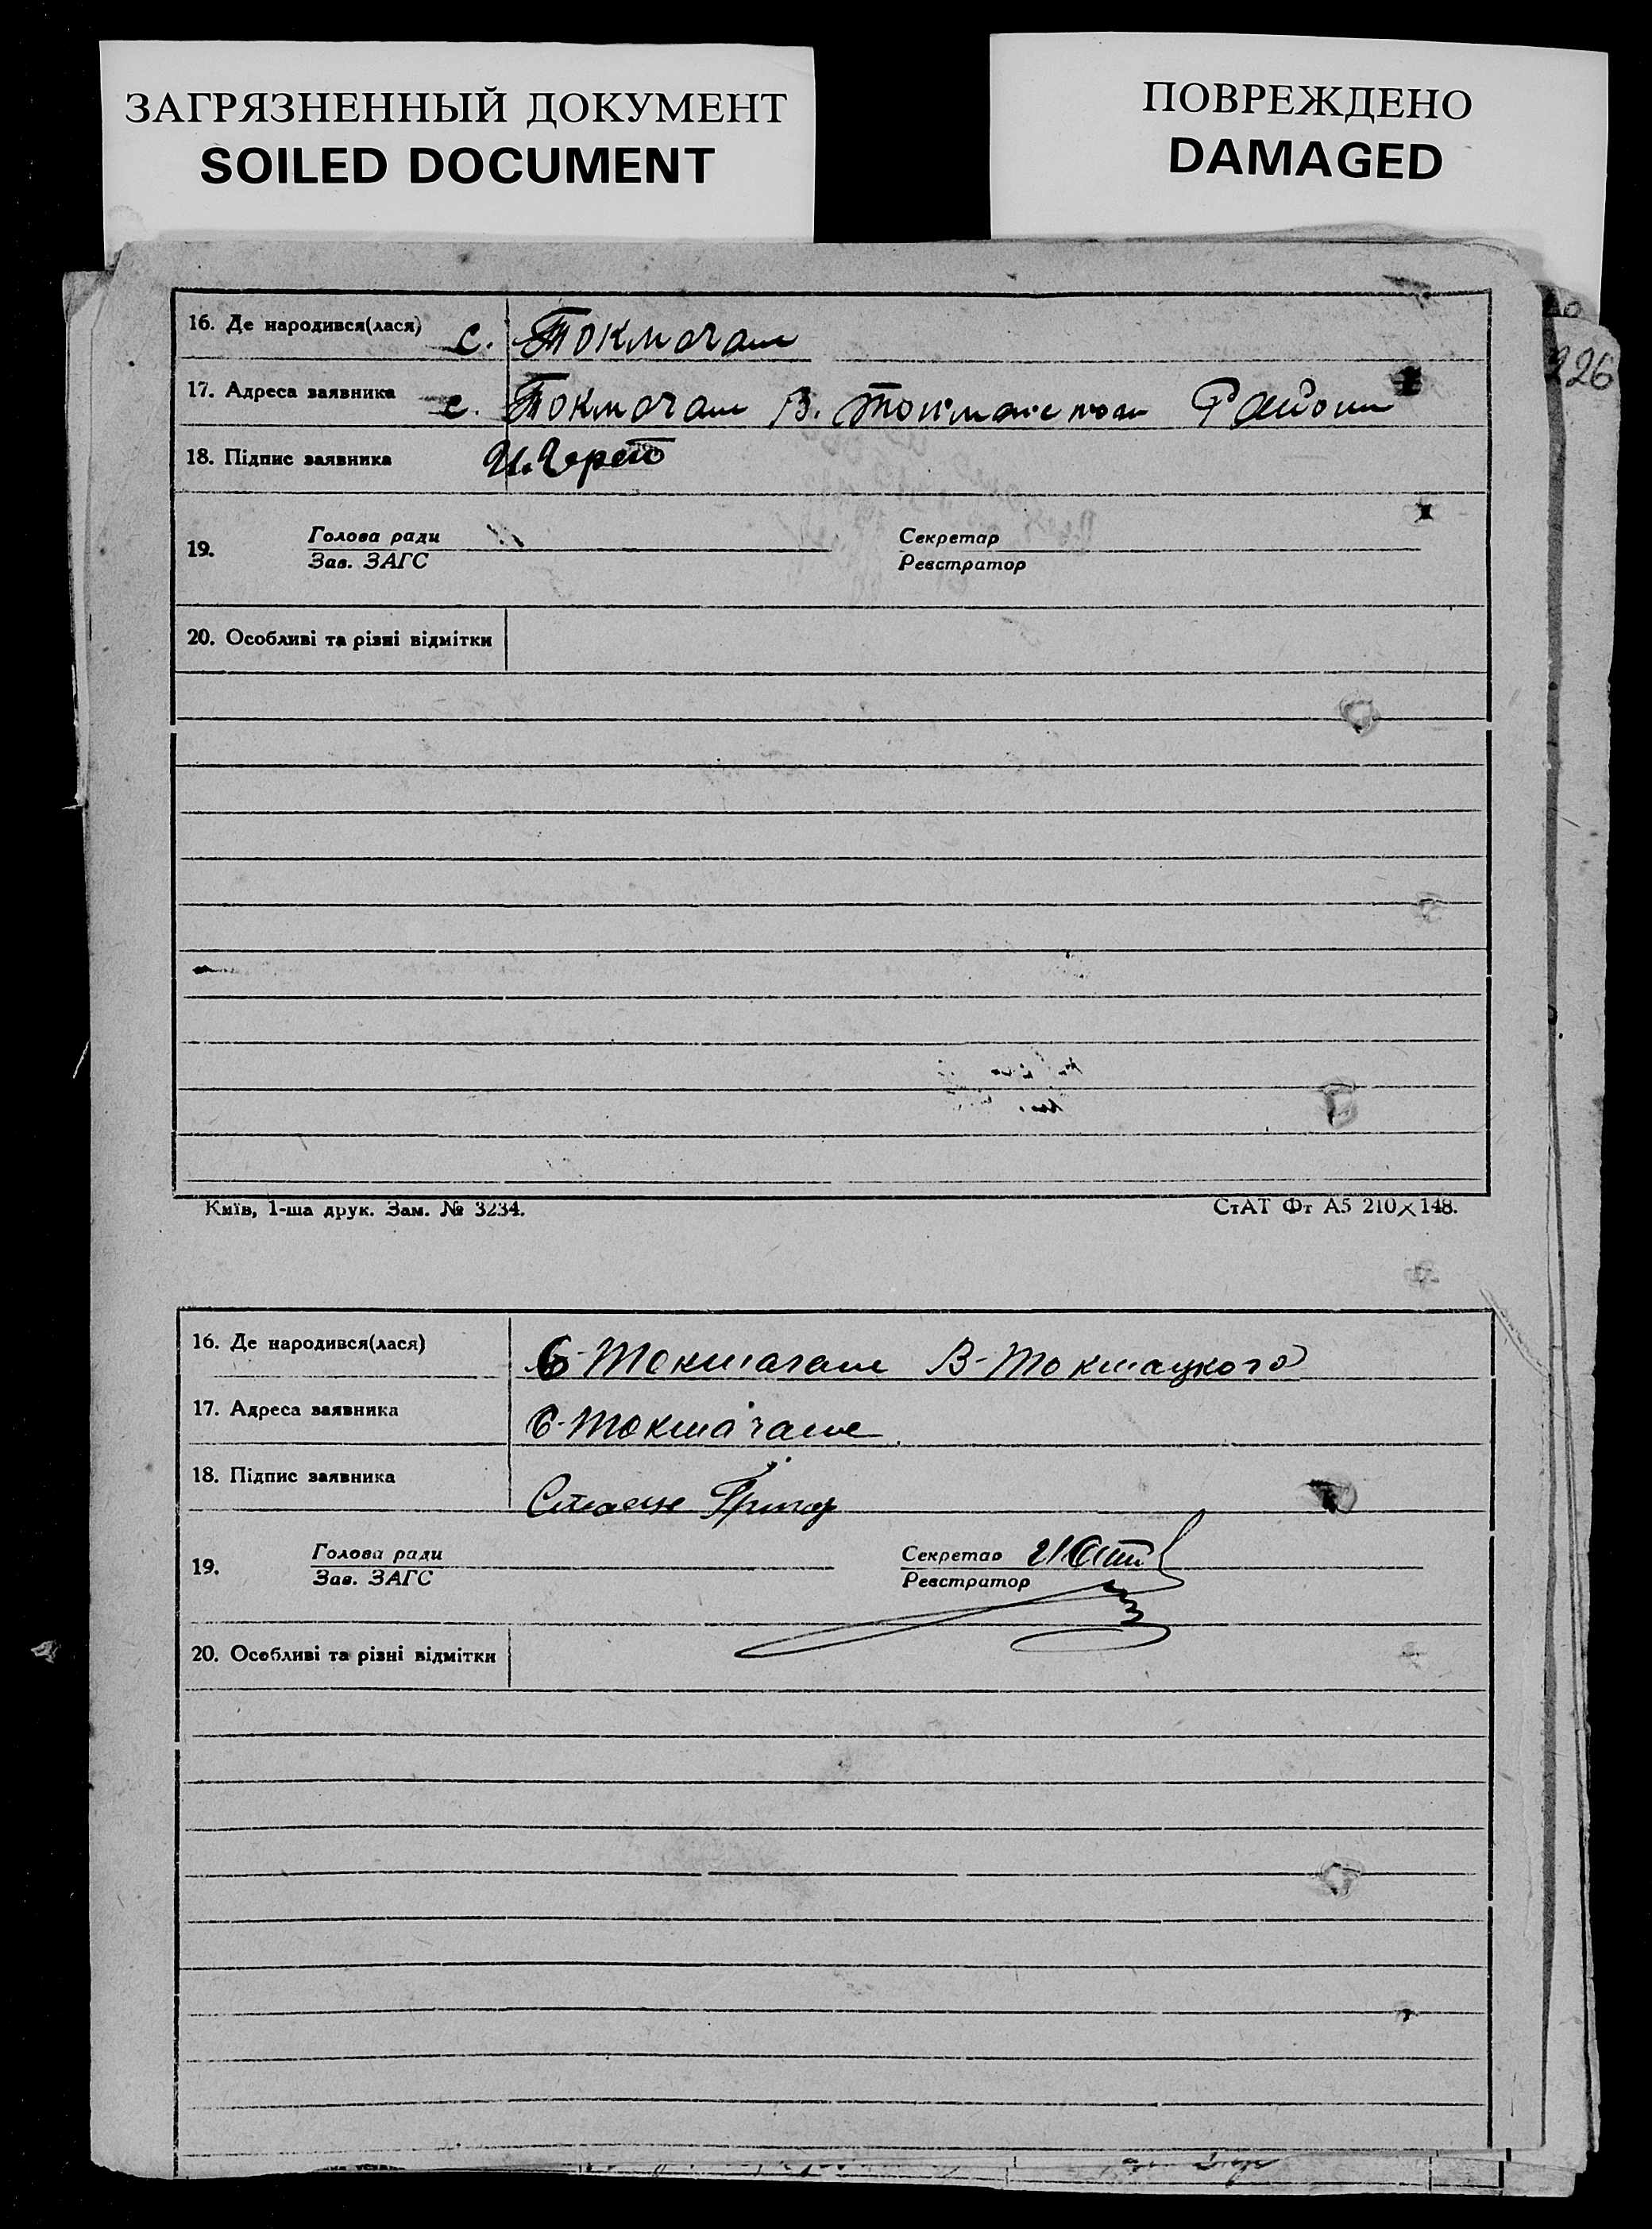 ЗАГРЯЗНЕННЫЙ ДОКУМЕНТ
SOILED DOCUMENT
ПОВРЕЖДЕНО
DAMAGED
226
16. Де народився(лася) с. Токмачат
17. Адреса заявника с. Токмачат В. Токмакском Районе
18. Підпис заявника
19. Голова ради Секретар
Зав. ЗАГС Реєстратор
20. Особливі та різні відмітки
Київ, 1-ша друк. Зам. № 3234.
СтАТ Фт А5 210×148.
16. Де народився(лася) С-Токмачат В-Токмацкого
17. Адреса заявника С-Токмачат
18. Підпис заявника
19. Голова ради Секретар
Зав. ЗАГС Реєстратор
20. Особливі та різні відмітки